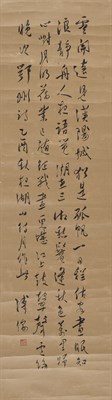 雲開遠見漢陽城猶是孤帆一日程估客晝眠知
浪靜舟人夜語覺潮生三湘愁鬢逢秋色萬里歸
心對月明舊業已隨征戰盡更堪江上鼓鼙聲盧綸
晚次鄂州詩乙酉秋